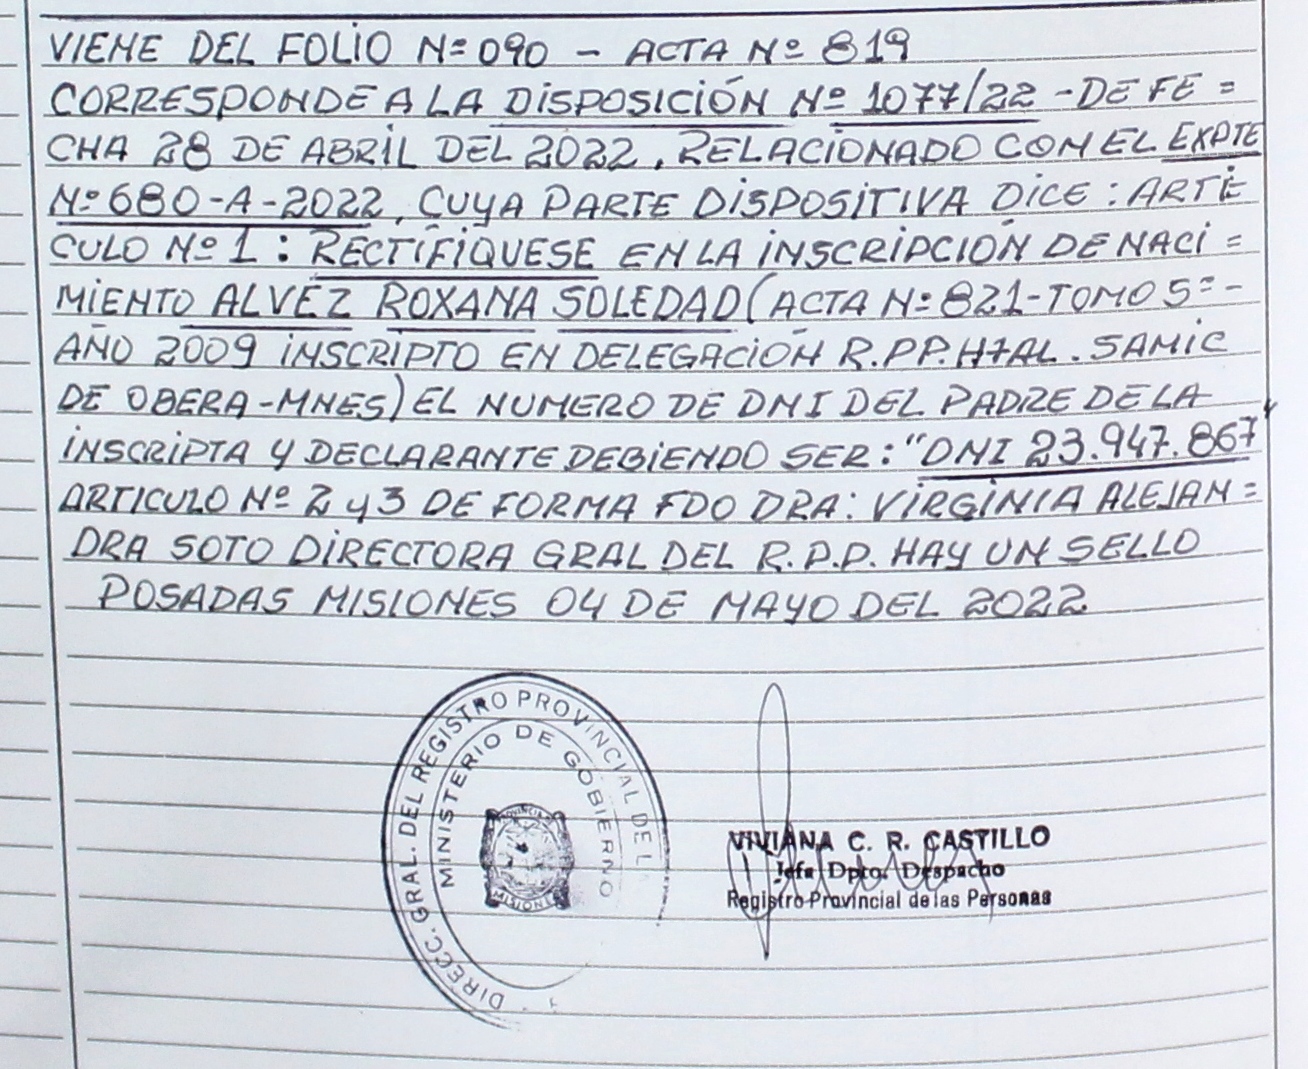 VIENE DEL FOLIO Nº 090 - ACTA Nº 819
CORRESPONDE A LA DISPOSICIÓN Nº 1077/22 - DE FE =
CHA 28 DE ABRIL DEL 2022, RELACIONADO CON EL EXPTE
Nº 680-A-2022, CUYA PARTE DISPOSITIVA DICE : ARTÍ
CULO Nº 1 : RECTIFIQUESE EN LA INSCRIPCIÓN DE NACI =
MIENTO ALVEZ ROXANA SOLEDAD (ACTA Nº 821-TOMO 5º -
AÑO 2009 INSCRIPTO EN DELEGACIÓN R.PP. HTAL. SAMIC
DE OBERA-MNES) EL NUMERO DE DNI DEL PADRE DE LA
INSCRIPTA Y DECLARANTE DEBIENDO SER: "DNI 23.947.867"
ARTICULO Nº 2 y 3 DE FORMA FDO DRA: VIRGINIA ALEJAN =
DRA SOTO DIRECTORA GRAL DEL R.P.P. HAY UN SELLO
POSADAS MISIONES 04 DE MAYO DEL 2022
DIRECC. GRAL. DEL REGISTRO PROVINCIAL DE
MINISTERIO DE GOBIERNO
MISIONES
VIVIANA C. R. CASTILLO
Jefa Dpto. Despacho
Registro Provincial de las Personas